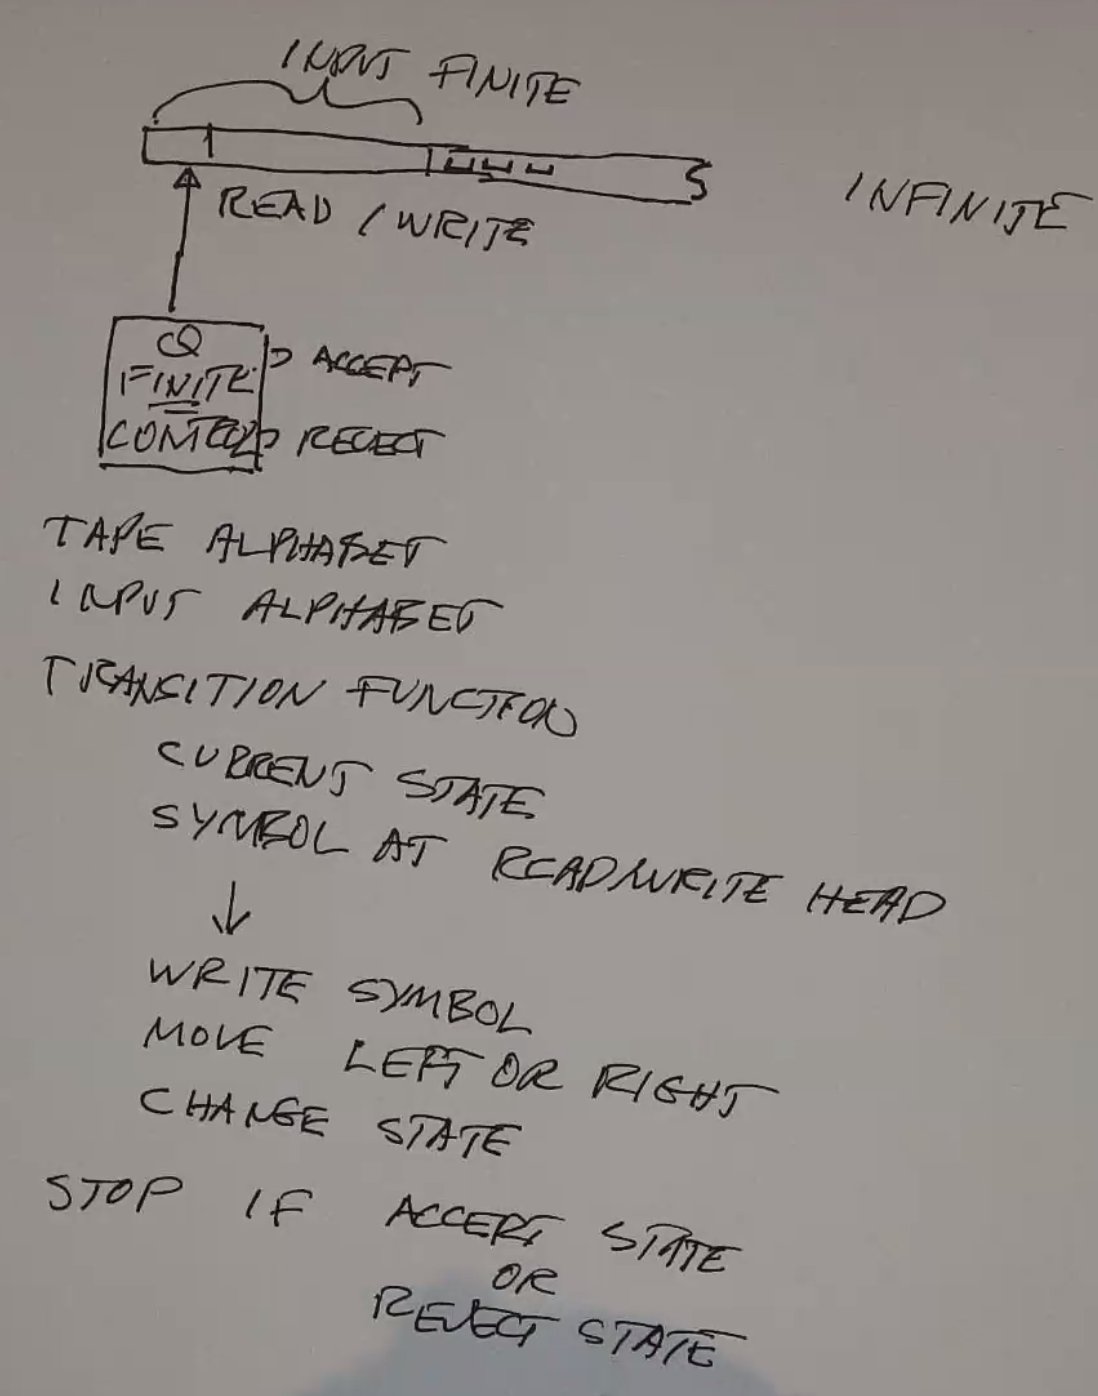 INPUT FINITE
␣ ␣ ␣
INFINITE
READ / WRITE
Q
FINITE
CONTROL
ACCEPT
REJECT
TAPE ALPHABET
INPUT ALPHABET
TRANSITION FUNCTION
CURRENT STATE
SYMBOL AT READ/WRITE HEAD
↓
WRITE SYMBOL
MOVE LEFT OR RIGHT
CHANGE STATE
STOP IF ACCEPT STATE
OR
REJECT STATE